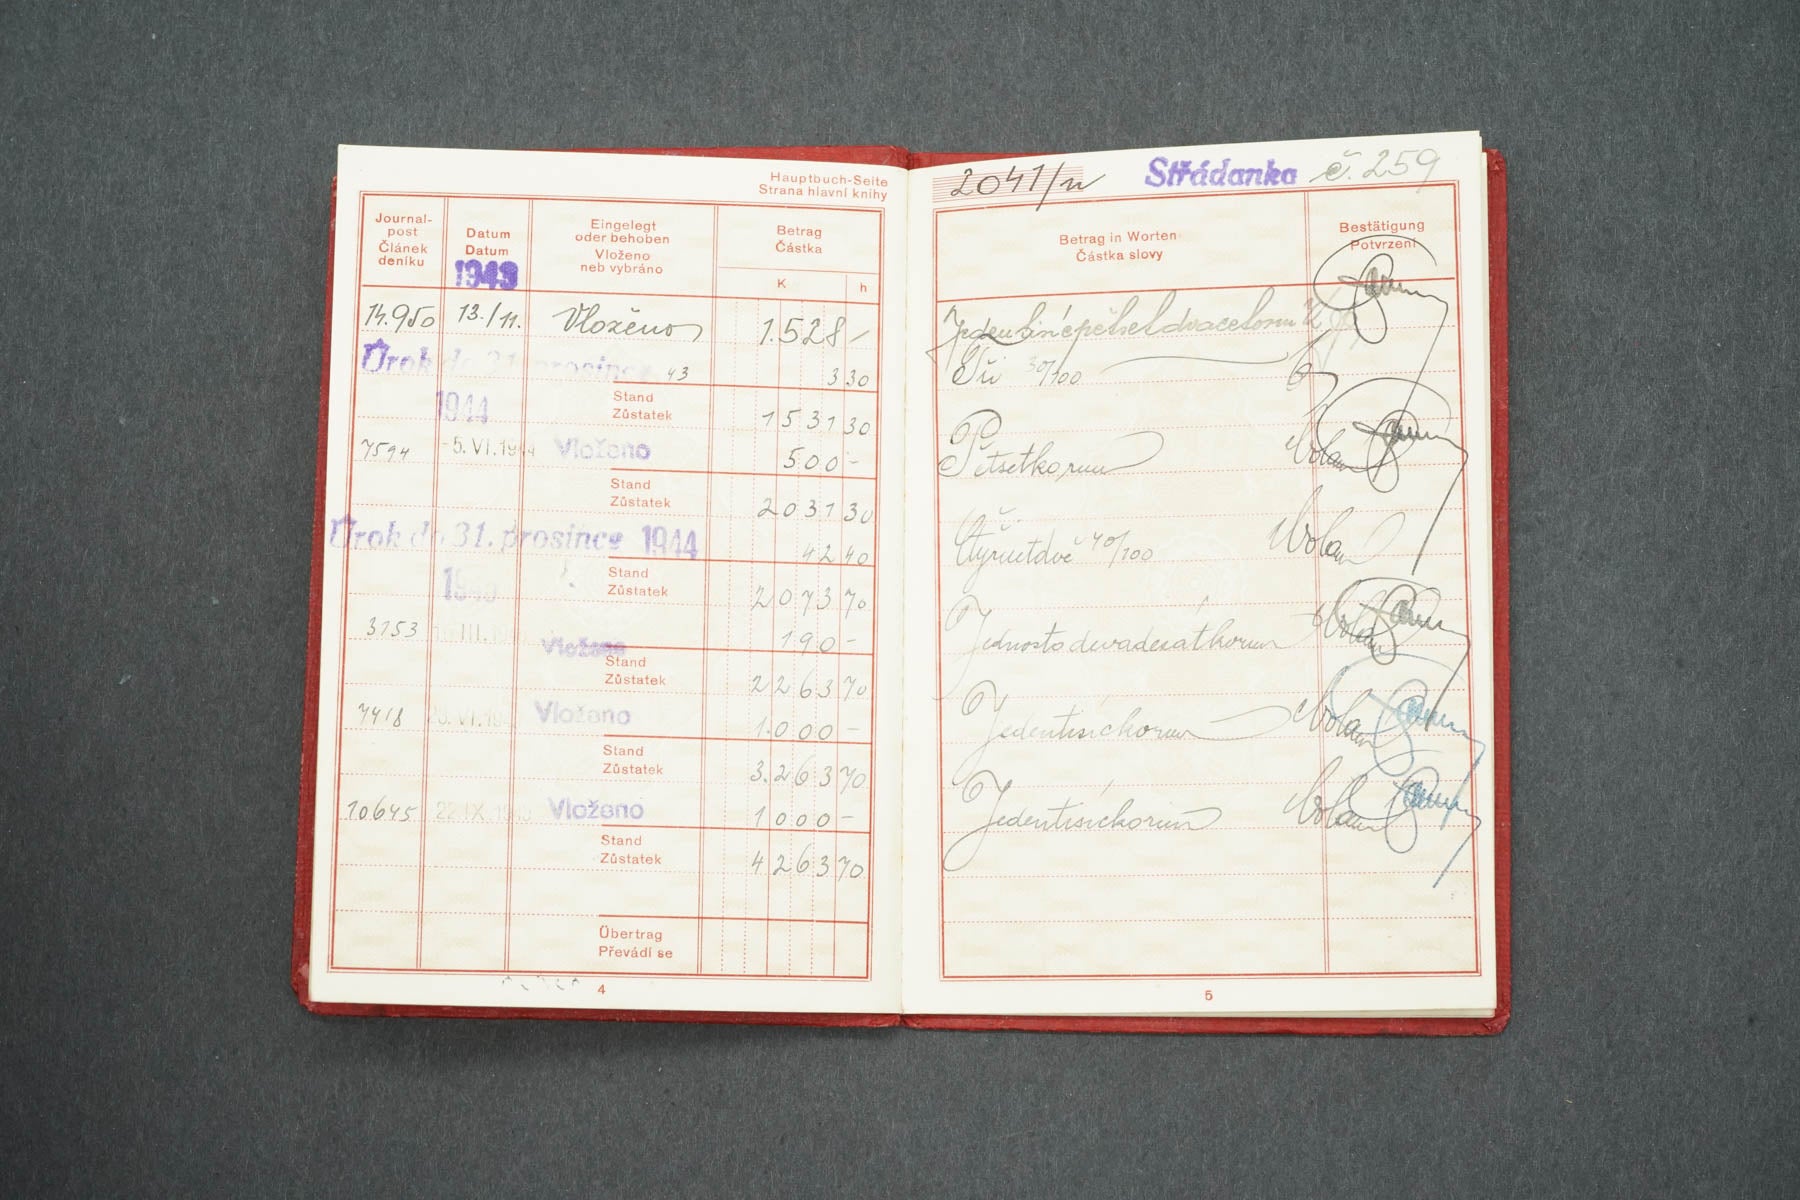 Hauptbuch-Seite
Strana hlavní knihy
2041/
Střádanka č. 259
Journal-
post
Článek
deníku
Datum
Datum
1943
Eingelegt
oder behoben
Vloženo
neb vybráno
Betrag
Částka
K h
Betrag in Worten
Částka slovy
Bestätigung
Potvrzení
14.950 13./11. Vloženo 1.528 –
Úrok do 31. prosince 43 3 30
Tři 30/100
1944
Stand
Zůstatek 1531 30
7594 -5. VI. 1944 Vloženo 500 –
Pětsetkorun
Stand
Zůstatek 2031 30
Úrok do 31. prosince 1944 42 40
Čtyřicetdvě 40/100
Stand
Zůstatek 2073 70
3153 III. Vloženo 190 –
Jednostodevadesátkorun
Stand
Zůstatek 2263 70
7418 VI. Vloženo 1.000 –
Jedentisíckorun
Stand
Zůstatek 3.263 70
10645 22. IX. Vloženo 1000 –
Jedentisíckorun
Stand
Zůstatek 4263 70
Übertrag
Převádí se
4
5